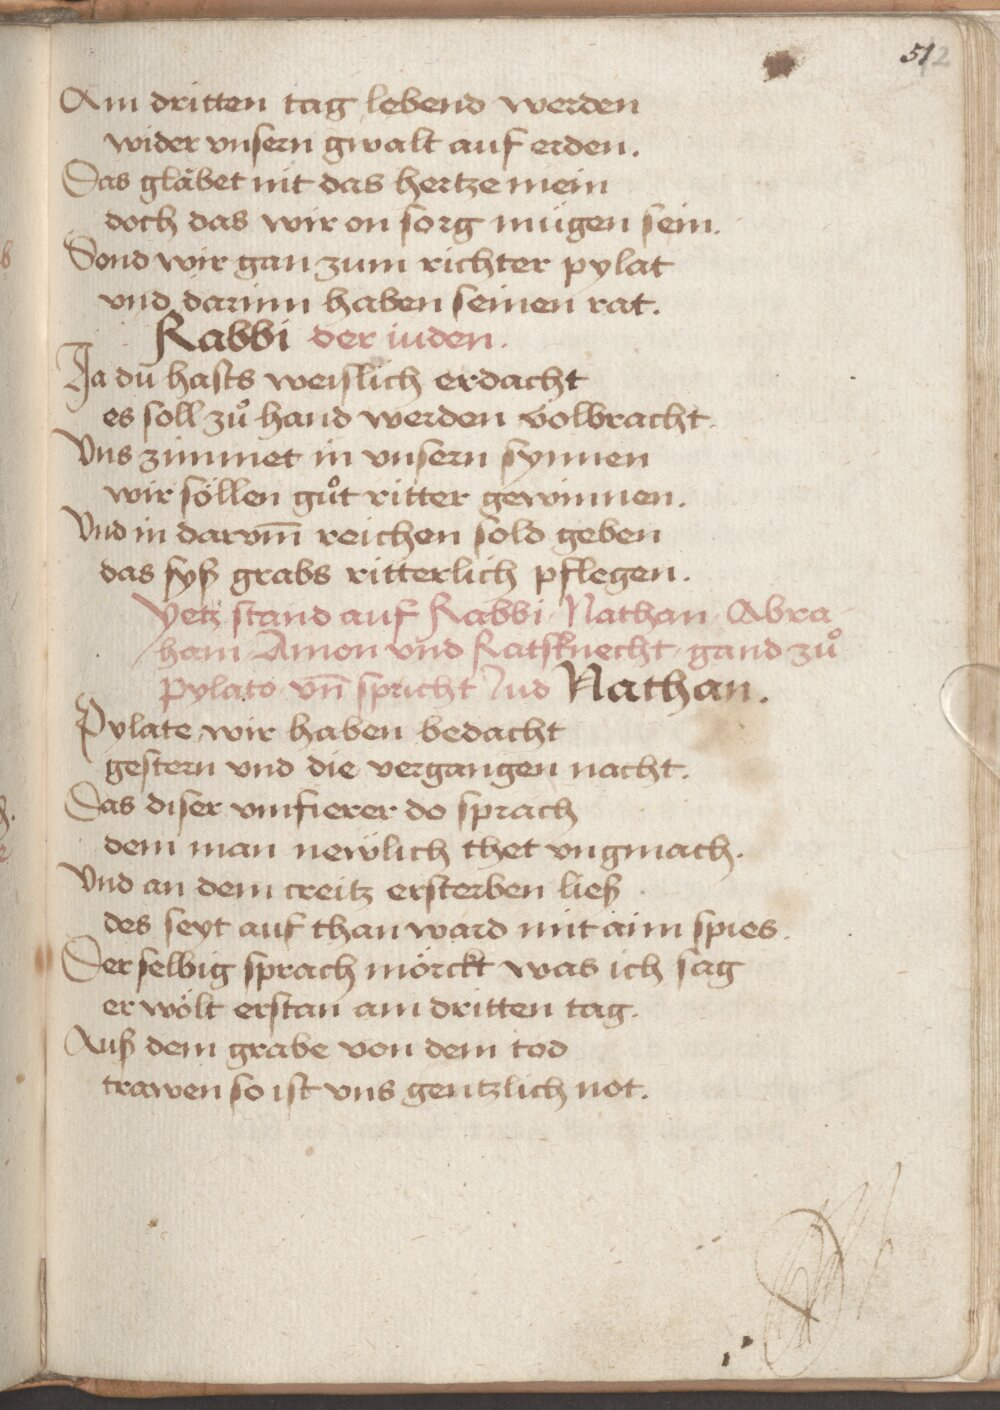 512
Am dritten tag lebend werden
wider vnsern gwalt auf erden.
Das gläbet nit das hertze mein
doch das wir on sorg mügen sein.
Sond wir gan zum richter pylat
vnd darinn haben seinen rat.
Rabbi der iuden.
Ja du hasts weislich erdacht
es soll zů hand werden volbracht.
Vns zimmet in vnsern synnen
wir söllen gůt ritter gewinnen.
Vnd in darvm̄ reichen sold geben
das syß grabs ritterlich pflegen.
Yetz stand auf Rabbi Nathan Abra
ham Amon vnd Ratsknecht gand zů
Pylato vn̄ spricht Jud Nathan.
Pylate wir haben bedacht
gestern vnd die vergangen nacht.
Das diser vmfierer do sprach
dem man newlich thet vngmach.
Vnd an dem creitz ersterben ließ
des seyt auf than ward mit aim spies.
Der selbig sprach mörckt was ich sag
er wölt erstan am dritten tag.
Auß dem grabe von dem tod
trawen so ist vns gentzlich not.